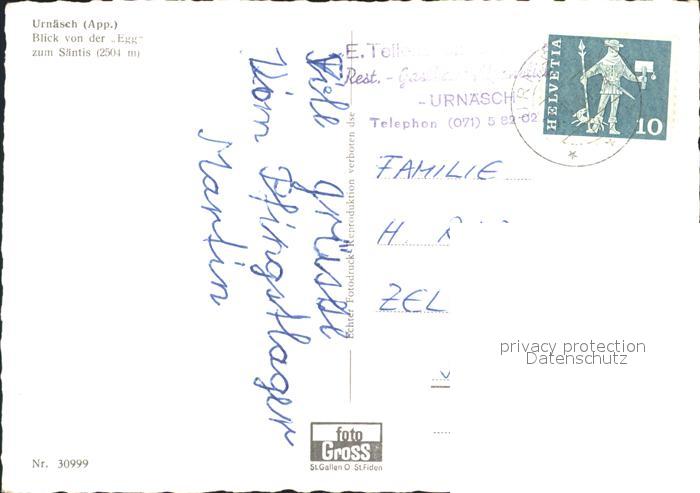 Urnäsch (App.)
Blick von der „Egg"
zum Säntis (2504 m)
Viel grüsse
Vom Pfingstlager
Martin
Echter Fotodruck Reproduktion verboten
E.
Rest. -
- URNÄSCH
Telephon (071) 5 82 02
HELVETIA
10
FAMILIE
H.
ZEL
privacy protection
Datenschutz
foto
Gross
St.Gallen O St.Fiden
Nr. 30999